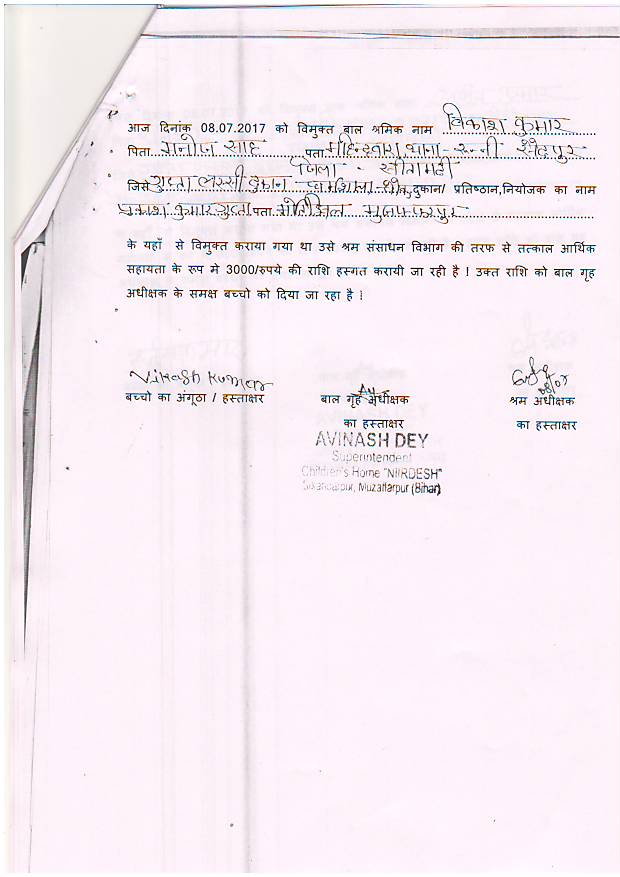 आज दिनांक 08.07.2017 को विमुक्त बाल श्रमिक नाम विकाश कुमार
पिता मनोज साह पता थाना - रुन्नी सैदपुर
जिला - सीतामढी
जिसे गुप्ता लस्सी दुकान चौक,दुकान/ प्रतिष्ठान,नियोजक का नाम
प्रकाश कुमार गुप्ता पता मोतीझील मुजफ्फरपुर
के यहाँ से विमुक्त कराया गया था उसे श्रम संसाधन विभाग की तरफ से तत्काल आर्थिक
सहायता के रुप मे 3000/रुपये की राशि हस्गत करायी जा रही है ! उक्त राशि को बाल गृह
अधीक्षक के समक्ष बच्चो को दिया जा रहा है !
Vikash Kumar
बच्चो का अंगूठा / हस्ताक्षर बाल गृह अधीक्षक श्रम अधीक्षक
का हस्ताक्षर का हस्ताक्षर
AVINASH DEY
Superintendent
Children's Home "NIRDESH"
Sikandarpur, Muzaffarpur (Bihar)